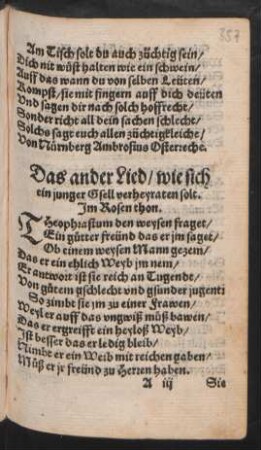 357
Am Tisch solt du auch züchtig sein/
Dich nit wüst halten wie ein schwein/
Auff das wann du von selben Leüten/
Kompst/ sie mit fingern auff dich deüten
Vnd sagen dir nach solch hoffrecht/
Sonder richt all dein sachen schlecht/
Solchs sagt euch allen züchtigkleiche/
Von Nürnberg Ambrosius Osterreche.
Das ander Lied/ wie sich
ein junger Gsell verheyraten solt.
Im Rosen thon.
THeophrastum den weysen fraget/
Ein gütter freünd das er jm saget/
Ob einem weysen Mann gezem/
Das er ein ehlich Weyb jm nem/
Er antwort ist sie reich an Tugendt/
Von gütem gschlecht vnd gsünder jugent/
So zimbt sie jm zu einer Frawen/
Weyl er auff das vngwiß müß bawen/
Das er ergreifft ein heyloß Weyb/
Ist besser das er ledig bleib/
Nimbt er ein Weib mit reichen gaben/
Müß er jr freünd zu Herren haben.
A iij Sie